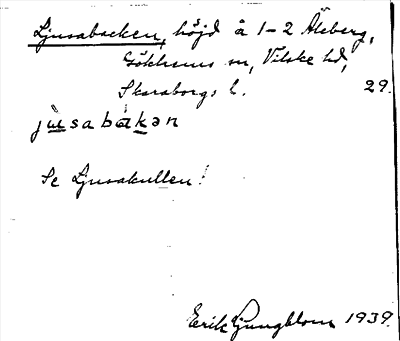 Ljusabacken, höjd å 1-2 Åleberg,
Gökhems sn, Vilske hd,
Skaraborgs l. 29.
jusabakən
Se Ljusakullen!
Erik Ljungblom 1939.